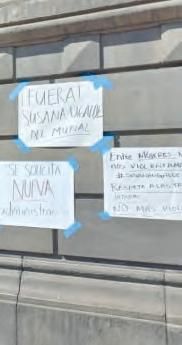 ¡FUERA!
SUSANA UGALDE
DEL MUNAL
SE SOLICITA
NUEVA
administración
Entre MUJERES N
NOS VIOLENTAMOS
RESPETA A LAS TRA
NO MAS VIOL